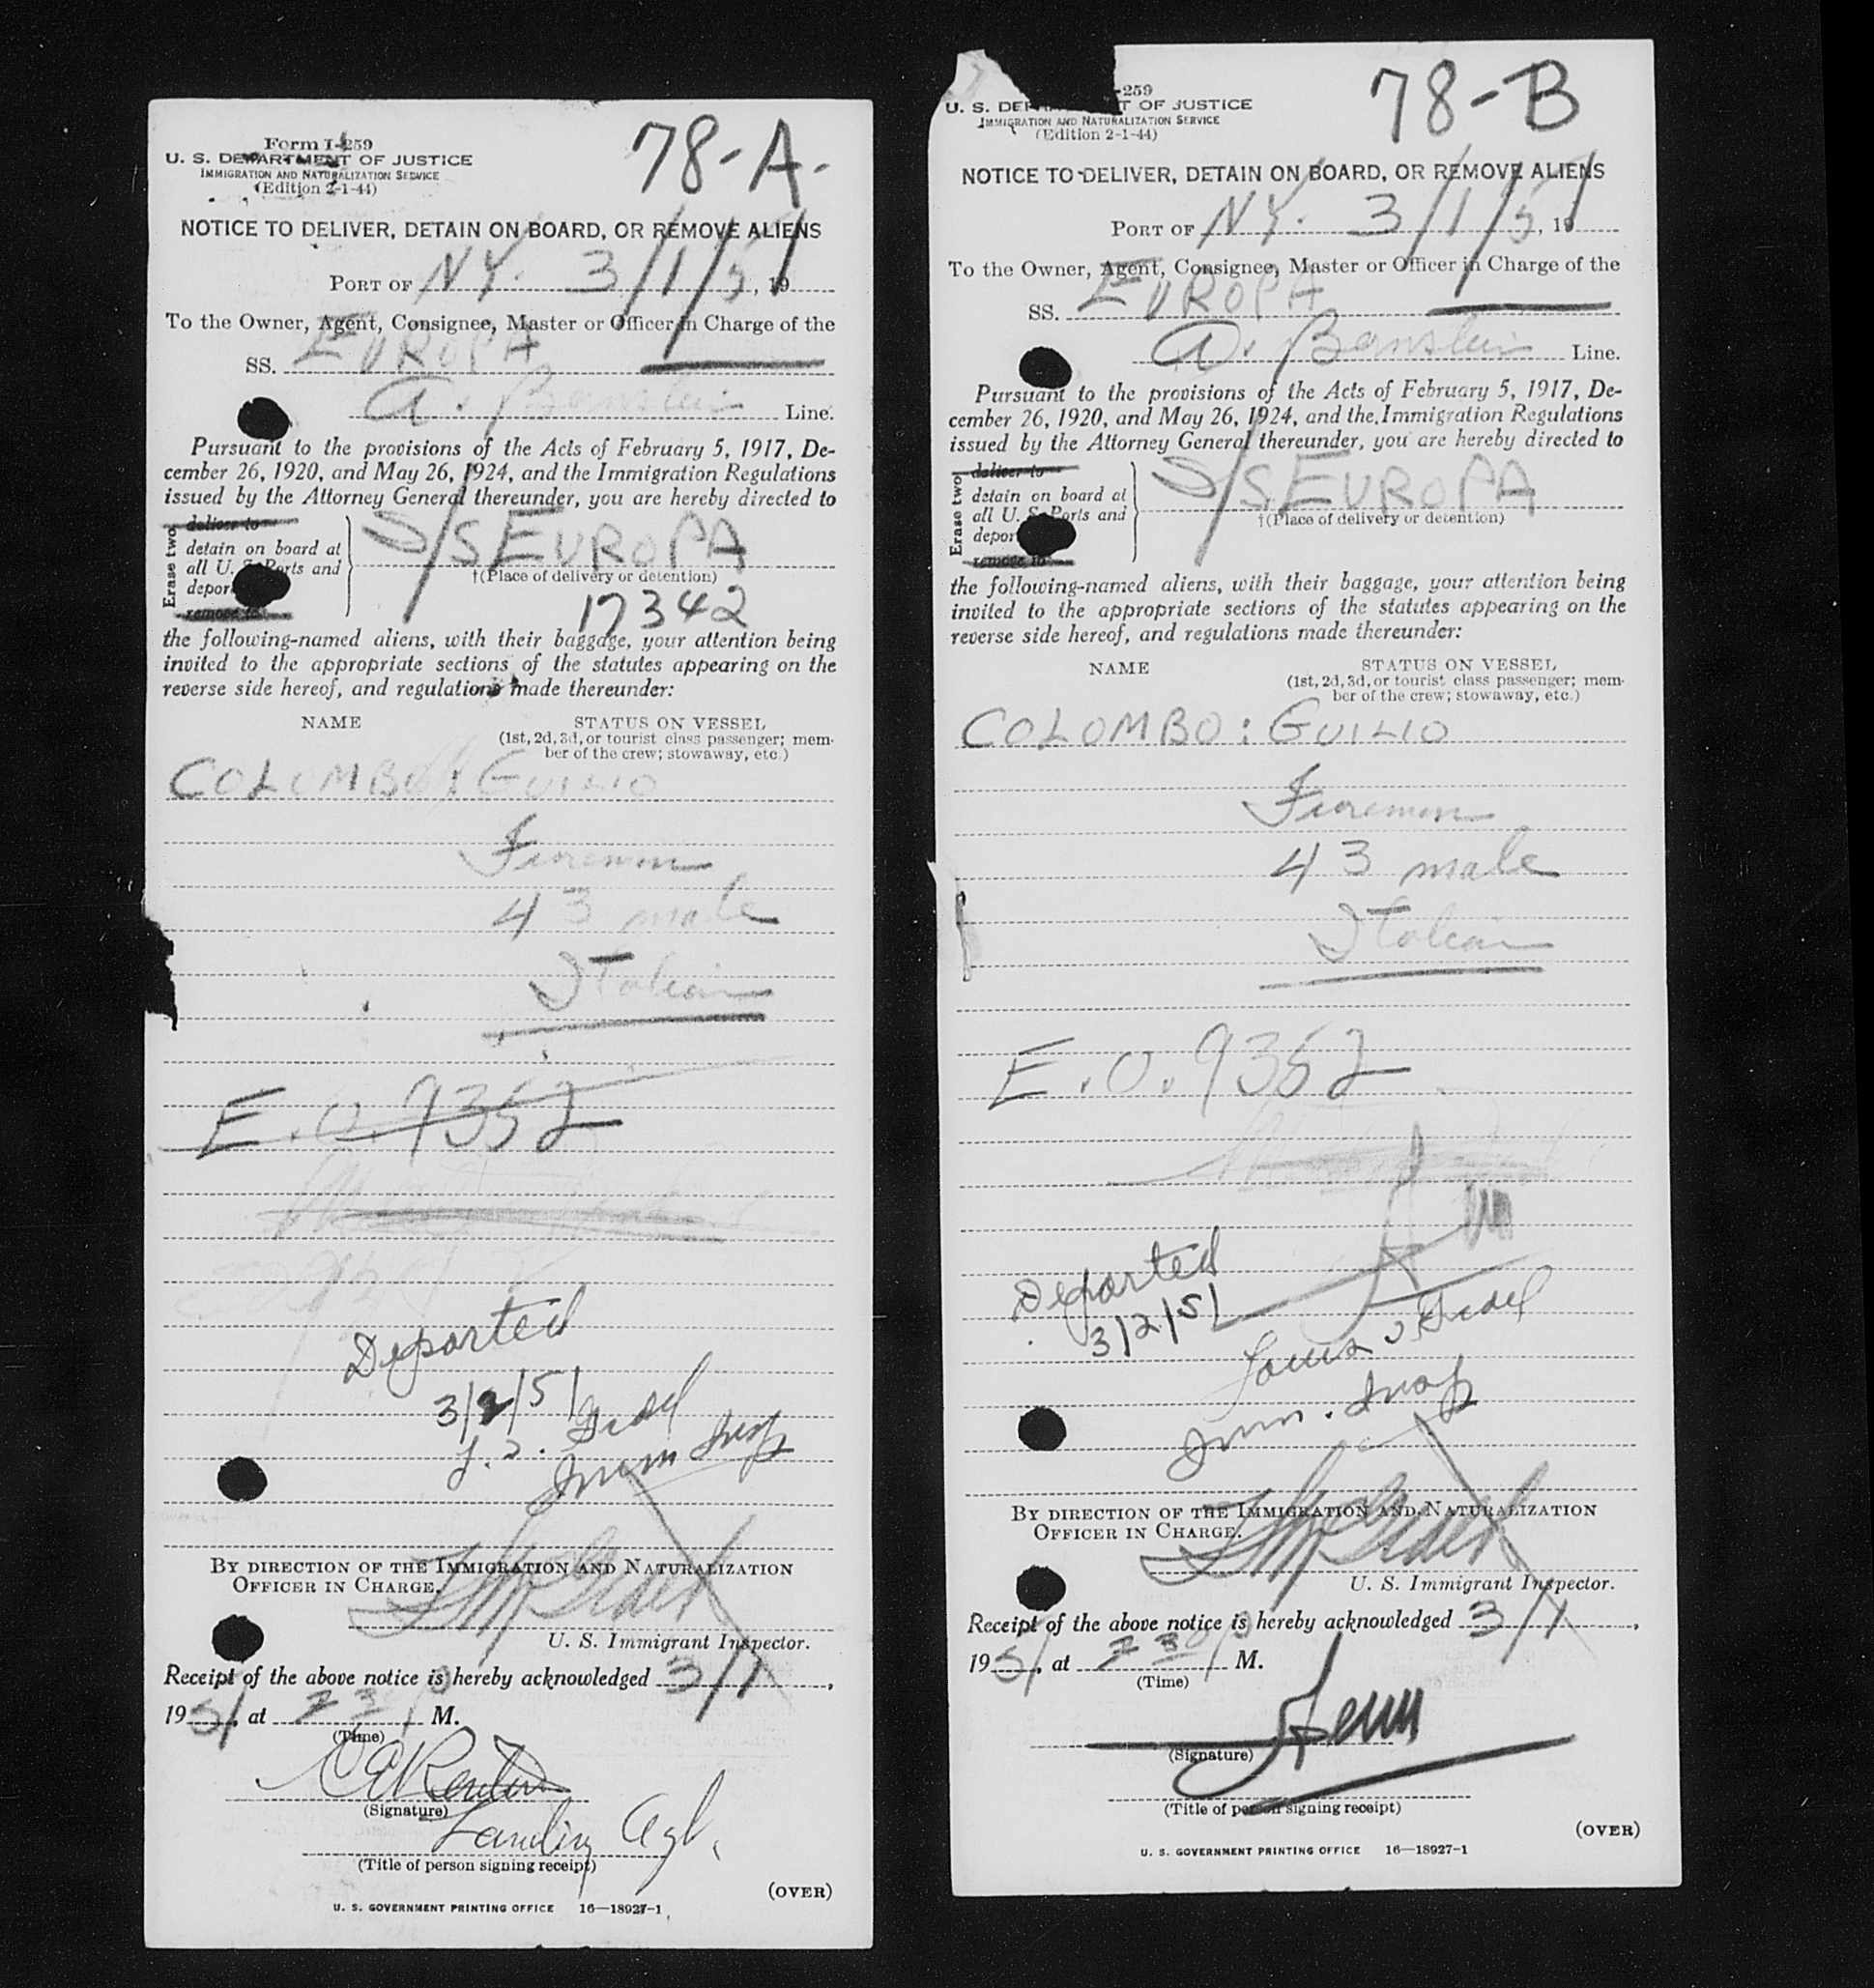 78-A.
Form I-259
U. S. DEPARTMENT OF JUSTICE
IMMIGRATION AND NATURALIZATION SERVICE
(Edition 2-1-44)
NOTICE TO DELIVER, DETAIN ON BOARD, OR REMOVE ALIENS
PORT OF N.Y. 3/1/51, 19
To the Owner, Agent, Consignee, Master or Officer in Charge of the
SS. EUROPA
A. Bernstein Line.
Pursuant to the provisions of the Acts of February 5, 1917, De-
cember 26, 1920, and May 26, 1924, and the Immigration Regulations
issued by the Attorney General thereunder, you are hereby directed to
Erase two
deliver to
detain on board at
all U. S. Ports and
depor
remove to
S/S EUROPA
†(Place of delivery or detention)
17342
the following-named aliens, with their baggage, your attention being
invited to the appropriate sections of the statutes appearing on the
reverse side hereof, and regulations made thereunder:
NAME STATUS ON VESSEL
(1st, 2d, 3d, or tourist class passenger; mem-
ber of the crew; stowaway, etc.)
COLOMBO: GUILIO
Fireman
43 male
Italian
E.O. 9352
Departed
3/2/51
Imm Insp
BY DIRECTION OF THE IMMIGRATION AND NATURALIZATION
OFFICER IN CHARGE.
U. S. Immigrant Inspector.
Receipt of the above notice is hereby acknowledged 3/1,
1951, at 7 30 P M.
(Time)
(Signature)
Landing Agt.
(Title of person signing receipt)
(OVER)
U. S. GOVERNMENT PRINTING OFFICE 16—18927-1
78-B
-259
U. S. DEPARTMENT OF JUSTICE
IMMIGRATION AND NATURALIZATION SERVICE
(Edition 2-1-44)
NOTICE TO DELIVER, DETAIN ON BOARD, OR REMOVE ALIENS
PORT OF N.Y. 3/1/51, 19
To the Owner, Agent, Consignee, Master or Officer in Charge of the
SS. EUROPA
A. Bernstein Line.
Pursuant to the provisions of the Acts of February 5, 1917, De-
cember 26, 1920, and May 26, 1924, and the Immigration Regulations
issued by the Attorney General thereunder, you are hereby directed to
Erase two
deliver to
detain on board at
all U. S. Ports and
depor
remove to
S/S EUROPA
†(Place of delivery or detention)
the following-named aliens, with their baggage, your attention being
invited to the appropriate sections of the statutes appearing on the
reverse side hereof, and regulations made thereunder:
NAME STATUS ON VESSEL
(1st, 2d, 3d, or tourist class passenger; mem-
ber of the crew; stowaway, etc.)
COLOMBO: GUILIO
Fireman
43 male
Italian
E.O. 9352
Departed
3/2/51
Imm. Insp
BY DIRECTION OF THE IMMIGRATION AND NATURALIZATION
OFFICER IN CHARGE.
U. S. Immigrant Inspector.
Receipt of the above notice is hereby acknowledged 3/1,
1951, at 7 30 P M.
(Time)
(Signature)
(Title of person signing receipt)
(OVER)
U. S. GOVERNMENT PRINTING OFFICE 16—18927-1